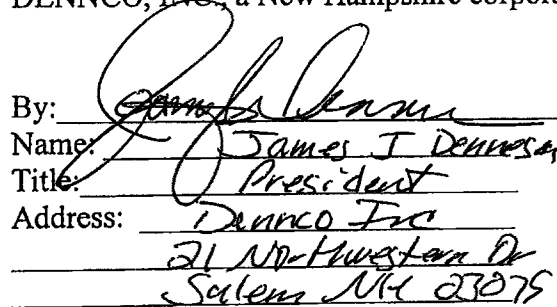 DENNCO, INC., a New Hampshire corpor
By:
Name: James J Denneson
Title: President
Address: Dennco Inc
21 Northwestern Dr
Salem NH 03079